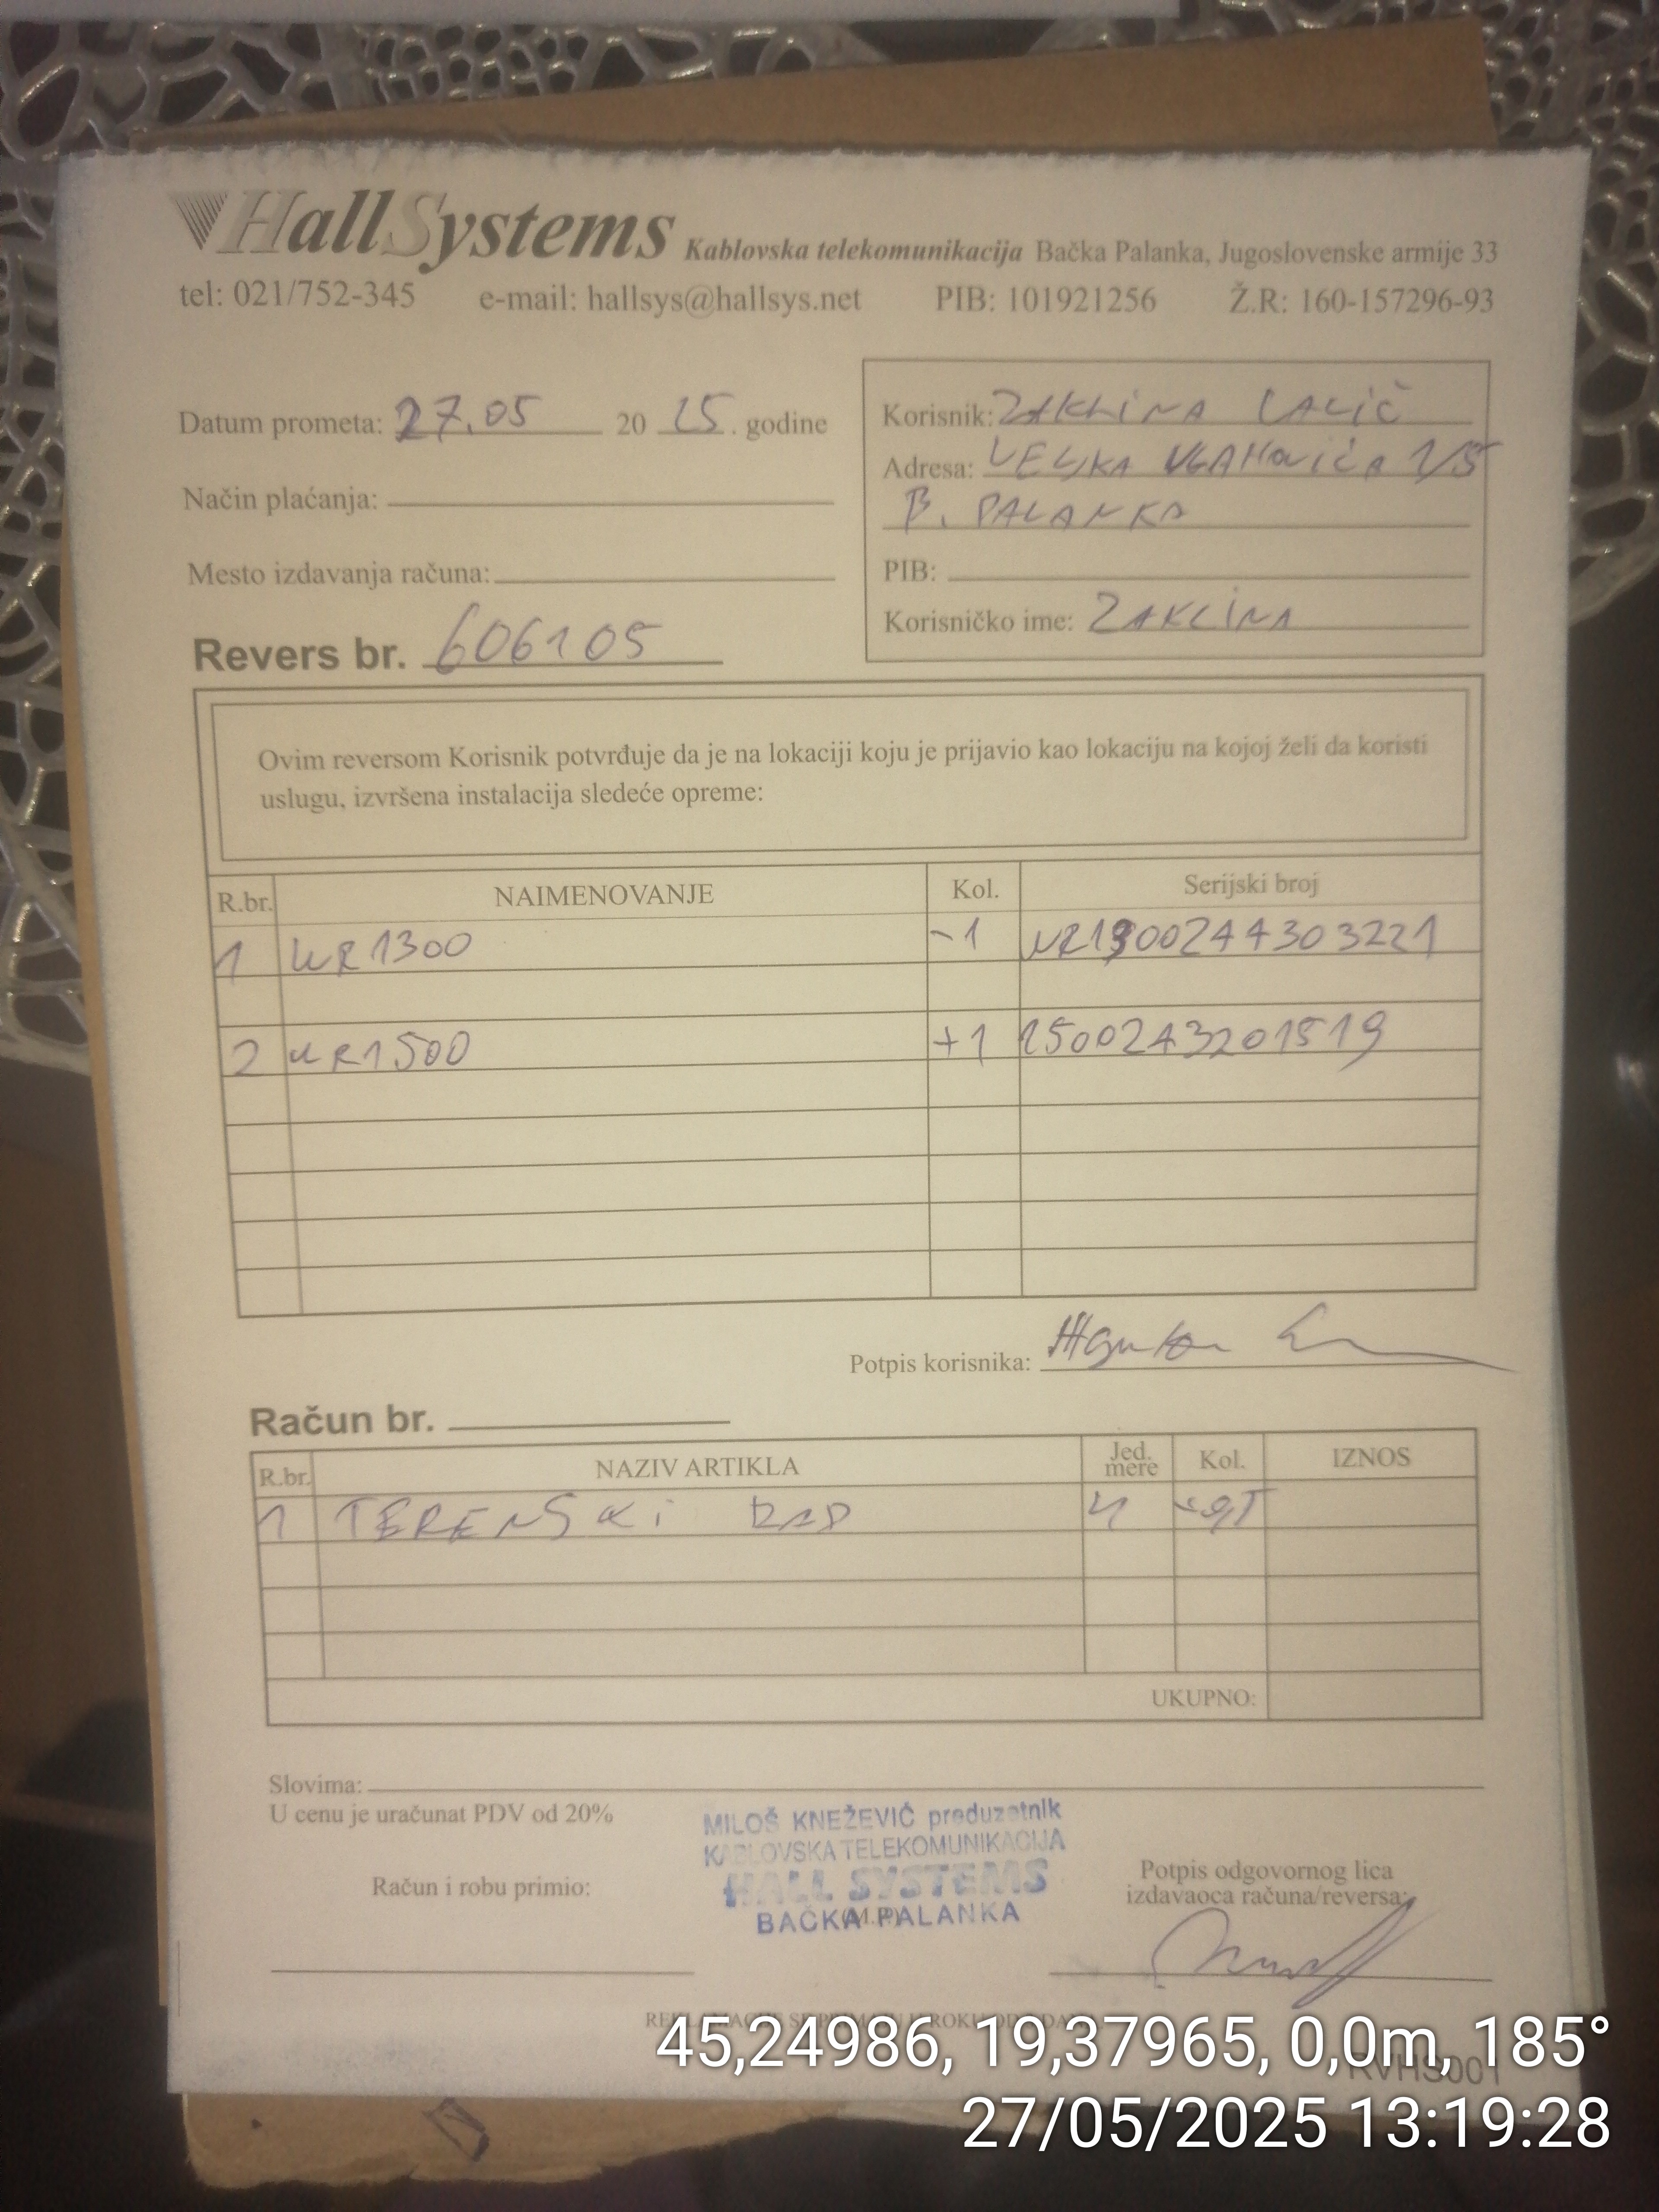 HallSystems Kablovska telekomunikacija Bačka Palanka, Jugoslovenske armije 33
tel: 021/752-345 e-mail: hallsys@hallsys.net PIB: 101921256 Ž.R: 160-157296-93
Datum prometa: 27.05 20 25. godine
Način plaćanja:
Mesto izdavanja računa:
Revers br. 606105
Korisnik: ZAKLINA LALIČ
Adresa: VELJKA VLAHOVIĆA 1/5
B. PALANKA
PIB:
Korisničko ime: ZAKLINA
Ovim reversom Korisnik potvrđuje da je na lokaciji koju je prijavio kao lokaciju na kojoj želi da koristi
uslugu, izvršena instalacija sledeće opreme:
R.br. NAIMENOVANJE Kol. Serijski broj
1 WR1300 -1 WR1300244303221
2 WR1500 +1 1500243201519
Potpis korisnika:
Račun br.
R.br. NAZIV ARTIKLA Jed. mere Kol. IZNOS
1 TERENSKI RAD
UKUPNO:
Slovima:
U cenu je uračunat PDV od 20%
MILOŠ KNEŽEVIĆ preduzetnik
KABLOVSKA TELEKOMUNIKACIJA
HALL SYSTEMS
BAČKA PALANKA
(M.P.)
Račun i robu primio:
Potpis odgovornog lica
izdavaoca računa/reversa:
45,24986, 19,37965, 0,0m, 185°
RVHS001
27/05/2025 13:19:28